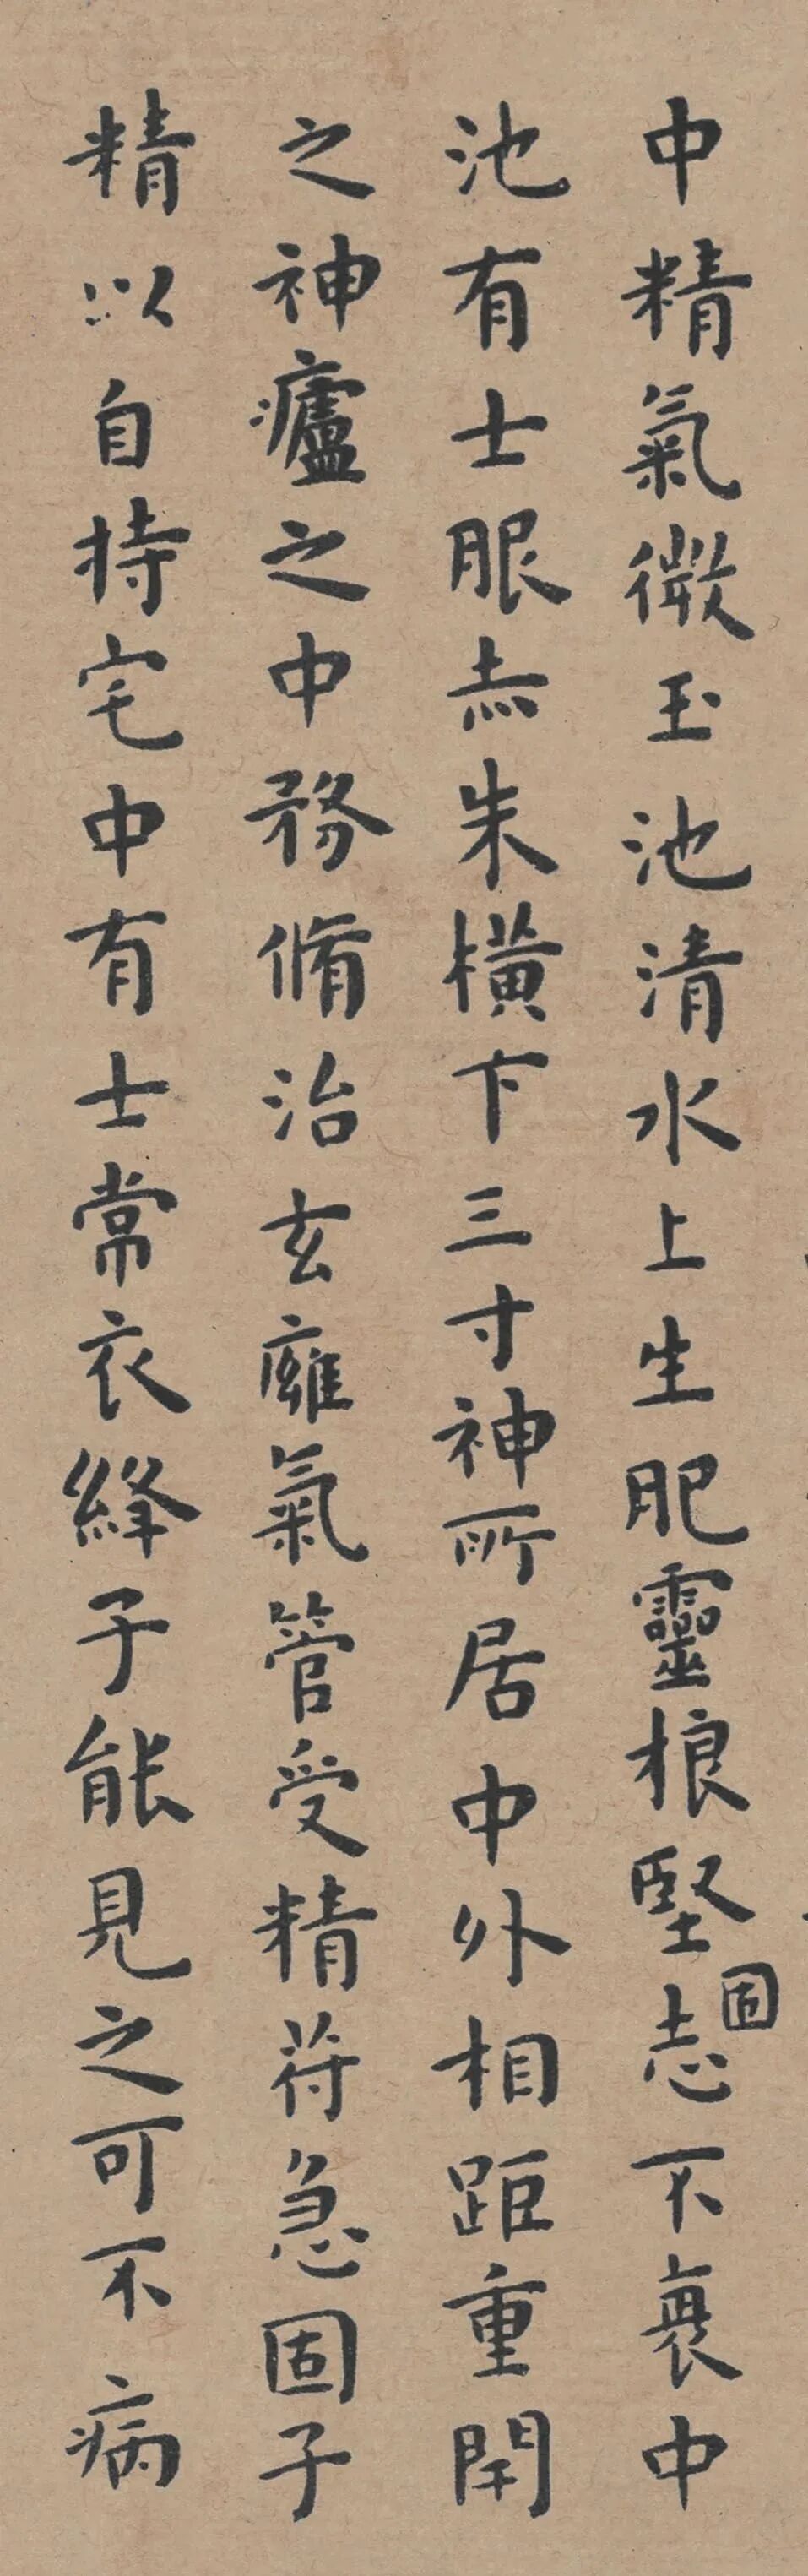 中精氣微玉池清水上生肥靈根堅固志不衰中
池有士服赤朱橫下三寸神所居中外相距重閉
之神廬之中務脩治玄廱氣管受精符急固子
精以自持宅中有士常衣絳子能見之可不病